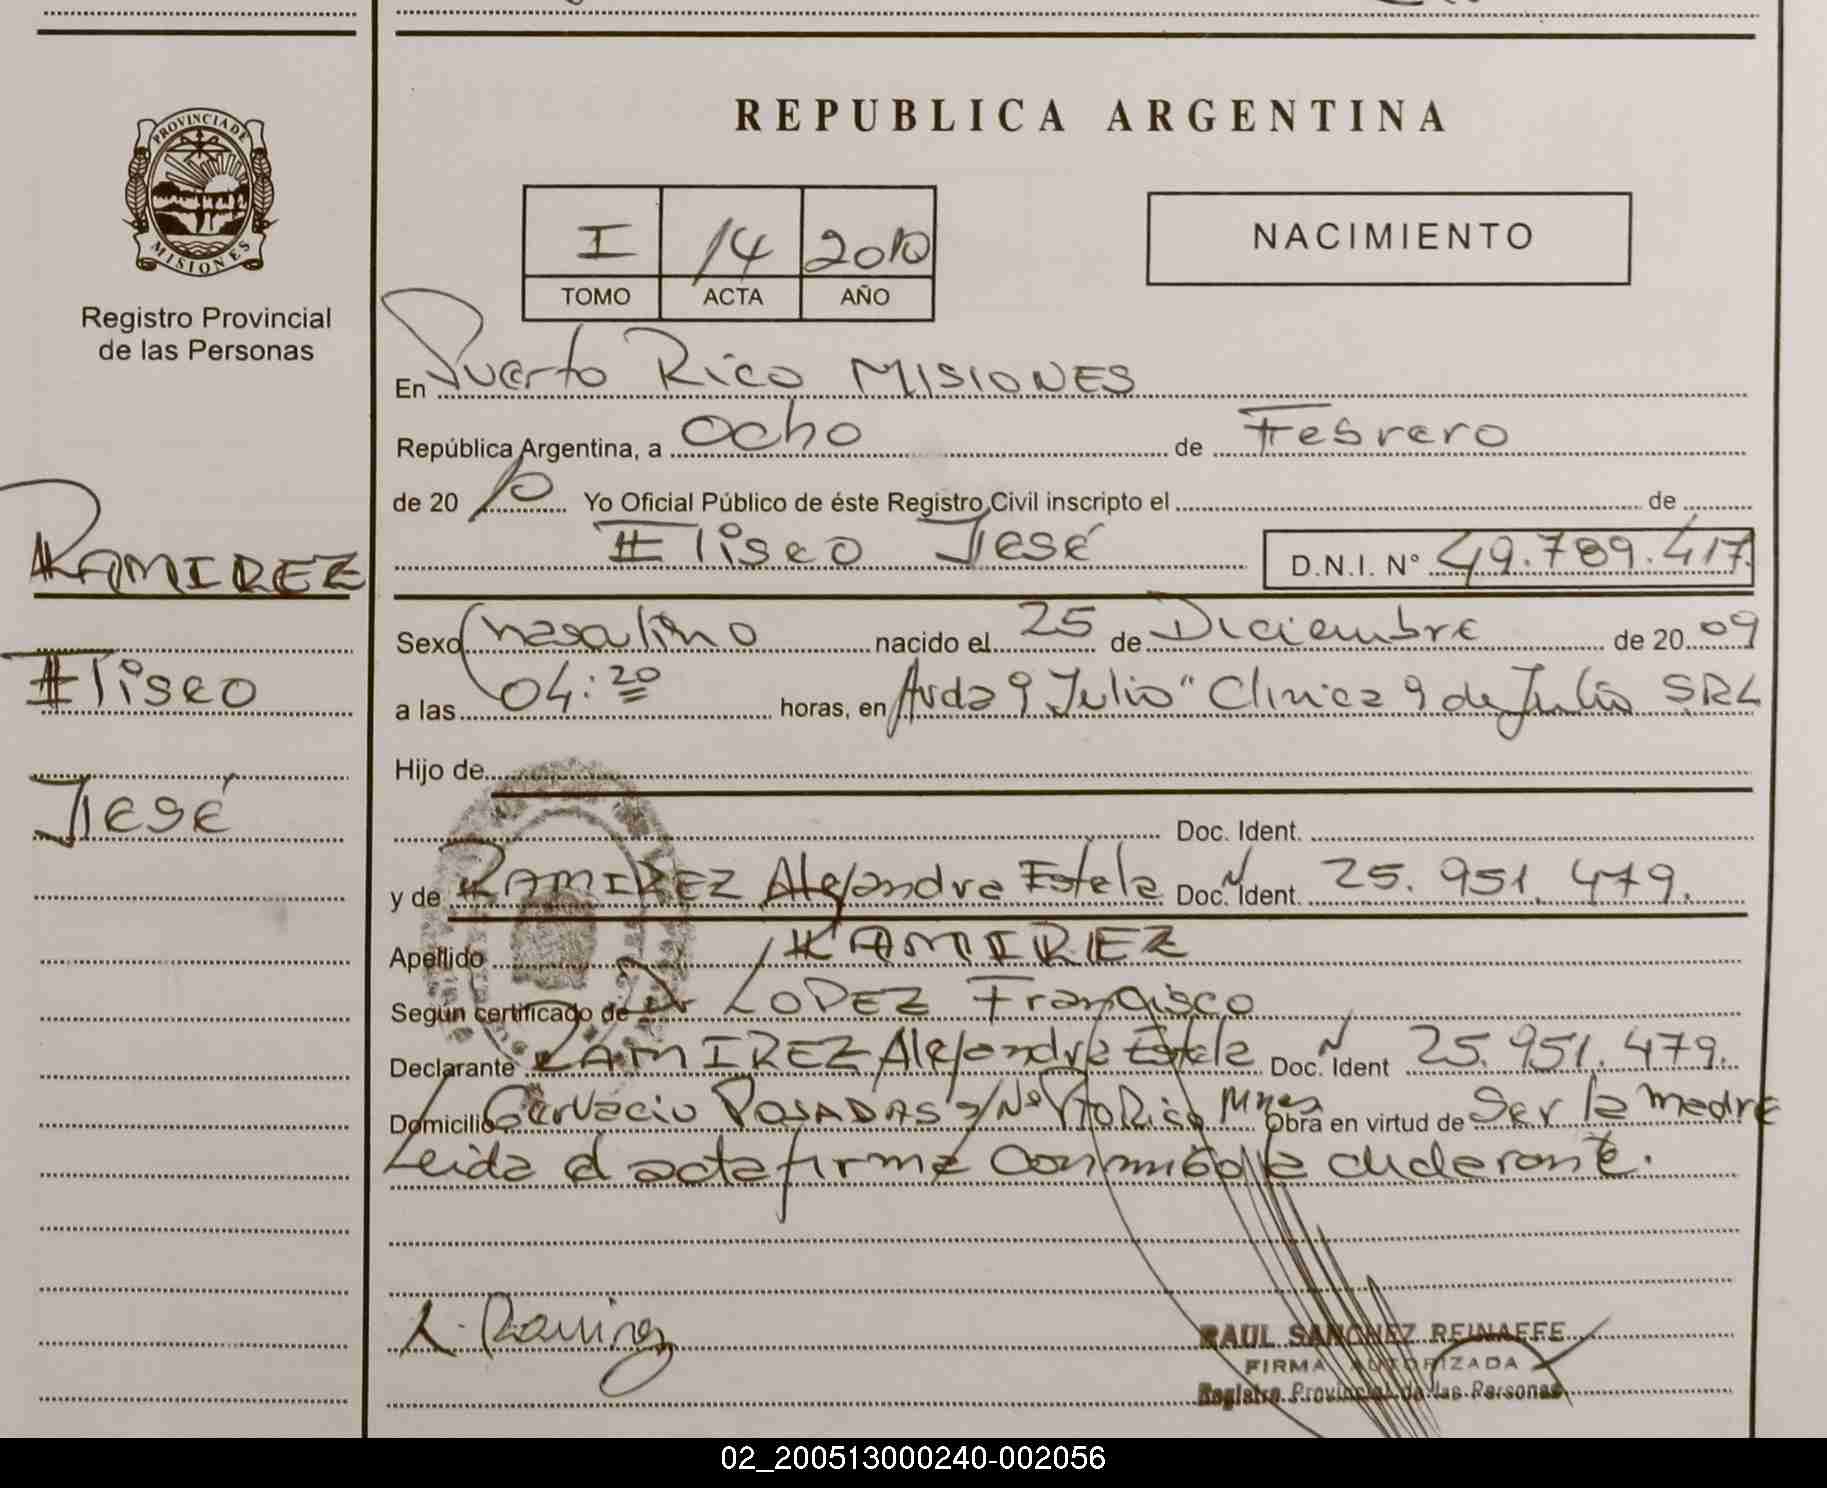 REPUBLICA ARGENTINA
PROVINCIA DE
MISIONES
Registro Provincial
de las Personas
I 14 2010
TOMO ACTA AÑO
NACIMIENTO
RAMIREZ
Eliseo
Jesé
En Puerto Rico MISIONES
República Argentina, a ocho de Febrero
de 20 10 Yo Oficial Público de éste Registro Civil inscripto el de
Eliseo Jesé D.N.I. N° 49.789.417.
Sexo masculino nacido el 25 de Diciembre de 20 09
a las 04:20 horas, en Avda 9 Julio "Clinica 9 de Julio SRL
Hijo de
Doc. Ident.
y de RAMIREZ Alejandra Estela Doc. Ident. 25.951.479.
Apellido RAMIREZ
Según certificado de Dr LOPEZ Francisco
Declarante RAMIREZ Alejandra Estela Doc. Ident 25.951.479.
Domicilio Gervacio POSADAS s/Nº Pto Rico Mnes Obra en virtud de Ser la madre
Leida el acta firma conmigo la declarante.
A. Ramirez
RAUL SANCHEZ REINAFFE
FIRMA AUTORIZADA
Registro Provincial de las Personas
02_200513000240-002056